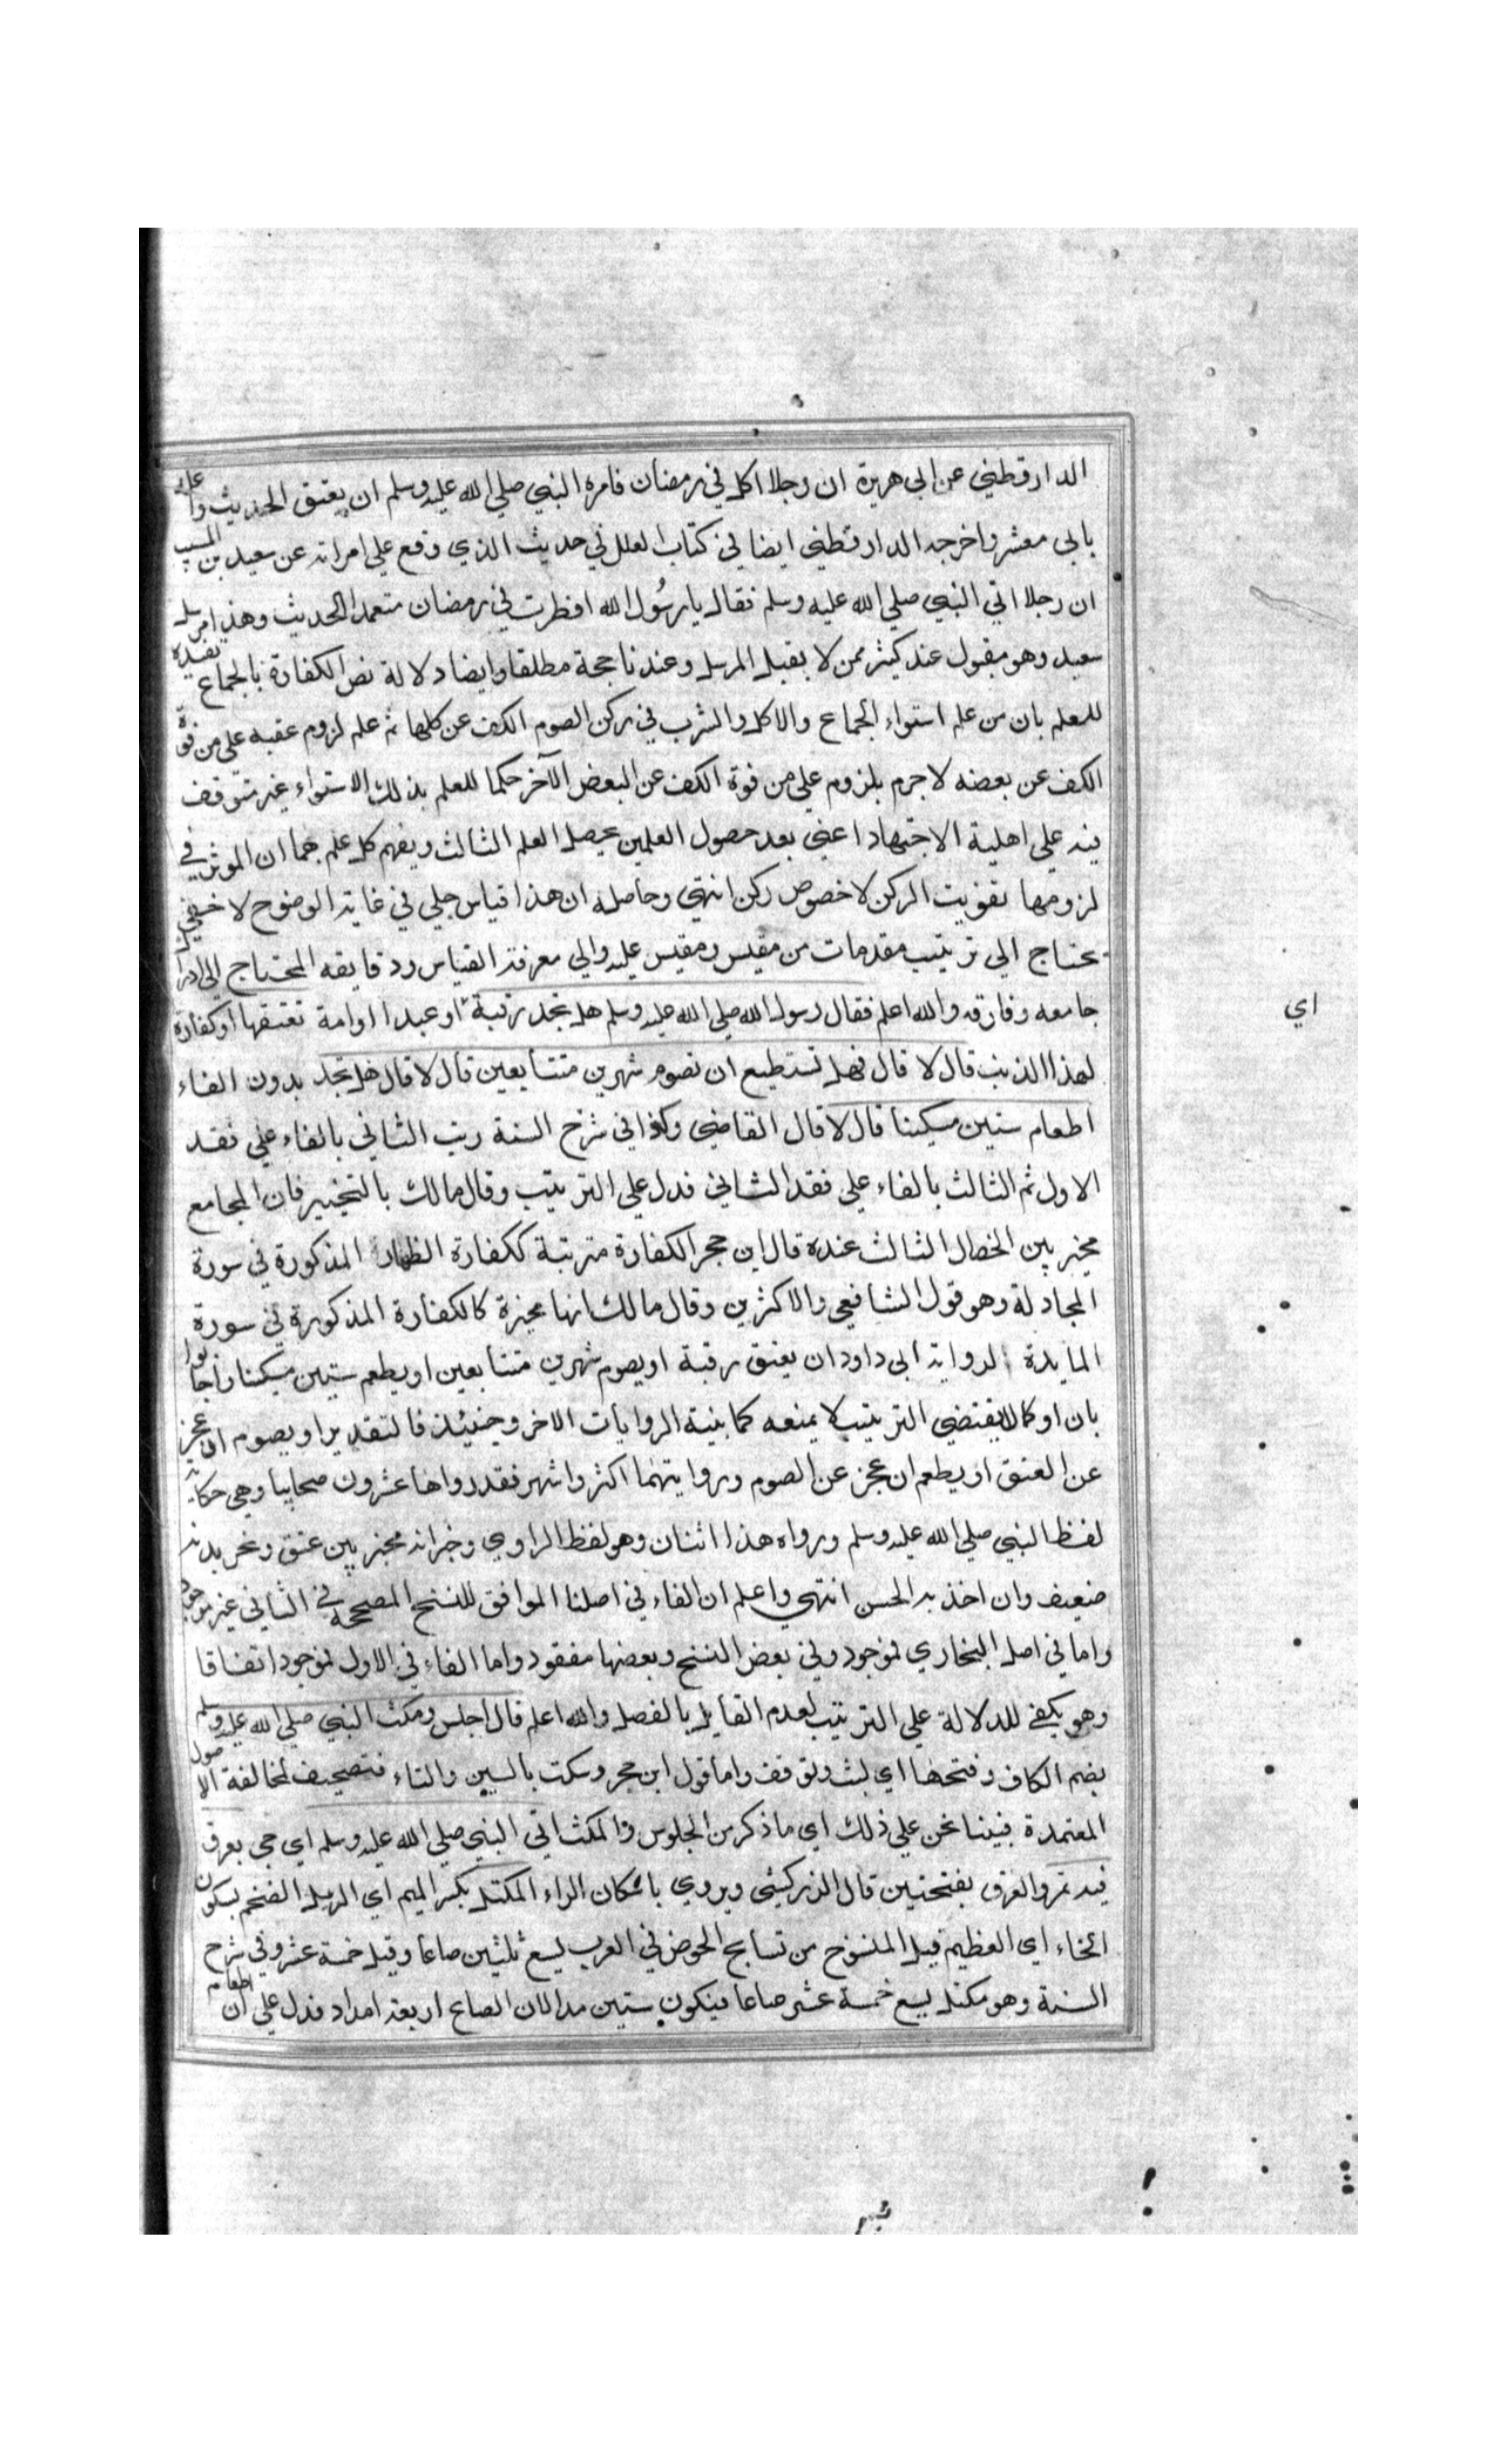 الدارقطني عن ابي هريرة ان رجلا اكل في رمضان فامره النبي صلي الله عليه وسلم ان يعتق الحديث واعله
بابي معشر واخرجه الدارقطني ايضا في كتاب العلل في حديث الذي وقع علي امراته عن سعيد بن المسيب
ان رجلا اتي النبي صلي الله عليه وسلم فقال يا رسُول الله افطرت في رمضان متعمدا الحديث وهذا مرسل
سعيد وهو مقبول عند كثير ممن لا يقبل المرسل وعندنا حجة مطلقا وايضا دلالة نص الكفارة بالجماع تفيده
للعلم بان من علم استواء الجماع والاكل والشرب في ركن الصوم الكف عن كلها ثم علم لزوم عقبه علي من فوة
الكف عن بعضه لا جرم يلزوم علي من فوة الكف عن البعض الآخر حكما للعلم بذلك الاستواء غير متوقف
فيه علي اهلية الاجتهاد اعني بعد حصول العلمين يحصل العلم الثالث ويفهم كل علم بهما ان الموثر في
لزومها تفويت الركن لا خصوص ركن انتهي وحاصله ان هذا قياس جلي في غاية الوضوح لا خفي
يحتاج الي ترتيب مقدمات من مقيس ومقيس عليه والي معرفة القياس ودقايقه المحتاج الي ادرا
جامعه وفارقه والله اعلم فقال رسول الله صلي الله عليه وسلم هل تجد رقبة او عبدا او امة تعتقها او كفارة
اي
لهذا الذنب قال لا قال فهل تستطيع ان تصوم شهرين متتابعين قال لا قال هل تجد بدون الفاء
اطعام ستين مسكينا قال لا قال القاضي وكذا في شرح السنة رتب الثاني بالفاء علي فقد
الاول ثم الثالث بالفاء علي فقد الثاني فدل علي الترتيب وقال مالك بالتخيير فان المجامع
مخير بين الخصال الثالث عنده قال ابن حجر الكفارة مترتبة ككفارة الظهار المذكورة في سورة
المجادلة وهو قول الشافعي والاكثرين وقال مالك انها مخيرة كالكفارة المذكورة في سورة
المايدة لرواية ابي داود ان يعتق رقبة او يصوم شهرين متتابعين او يطعم ستين مسكينا واجابوا
بان او كما لا يقتضي الترتيب لا يمنعه كما بينة الروايات الاخر وحينئذ فالتقدير او يصوم ان عجز
عن العتق او يطعم ان عجز عن الصوم ورواتهما اكثر واشهر فقد رواها عشرون صحابيا وهي حكاية
لفظ النبي صلي الله عليه وسلم ورواه هذا اثنان وهو لفظ الراوي وخبر انه مخير بين عتق ونحر بدنة
ضعيف وان اخذ به الحسن انتهي واعلم ان الفاء في اصلنا الموافق للنسخ المصححة في الثاني غير موجود
واما في اصل البخاري فموجود وفي بعض النسخ وبعضها مفقود واما الفاء في الاول فموجود اتفاقا
وهو يكفي للدلالة علي الترتيب لعدم القايل بالفصل والله اعلم قال اجلس ومكث النبي صلي الله عليه وسلم
بضم الكاف وفتحها اي لبث وتوقف واما قول ابن حجر وسكت بالسين والتاء فتصحيف لمخالفة الاصول
المعتمدة فبينا نحن علي ذلك اي ما ذكر من الجلوس والمكث اتي النبي صلي الله عليه وسلم اي جي بعرق
فيه تمر والعرق بفتحتين قال الزركشي ويروي باسكان الراء المكتل بكسر الميم اي الزبيل الضخم بسكون
الخاء اي العظيم قيل المنسوج من نسايج الخوص في العرب يسع ثلثين صاعا وقيل خمسة عشر وفي شرح
السنة وهو مكتل يسع خمسة عشر صاعا فيكون ستين مدا لان الصاع اربعة امداد فدل علي ان اطعام